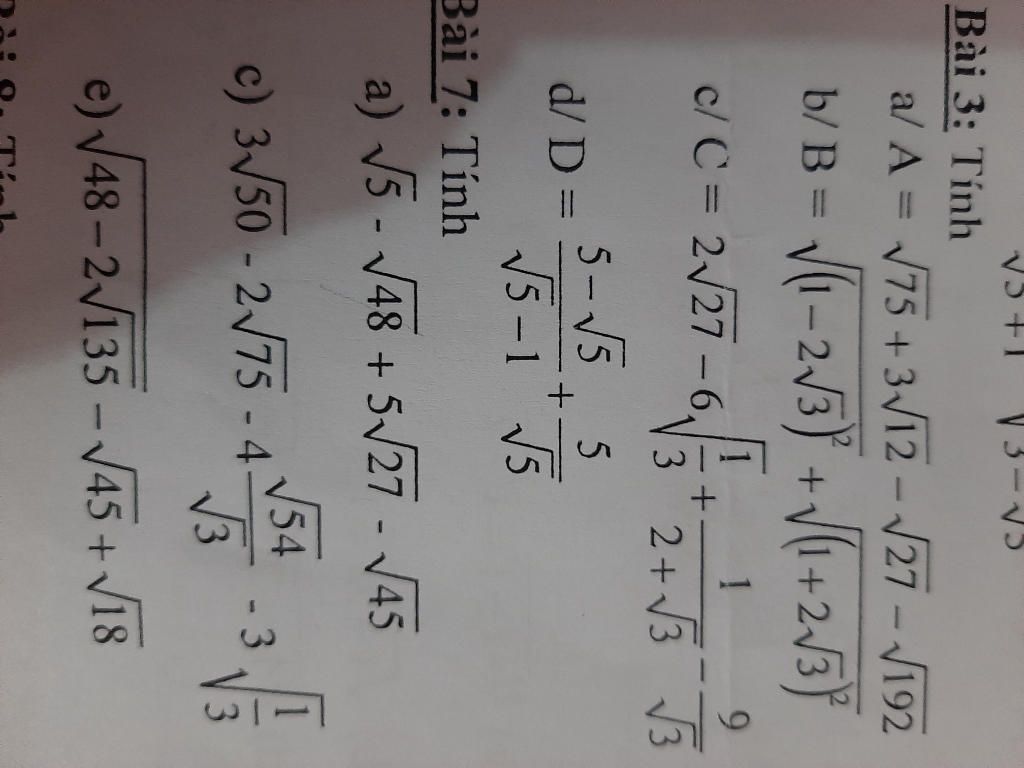 √5+1 √3−√5
Bài 3: Tính
a/ A = √75 + 3√12 − √27 − √192
b/ B = √(1−2√3)² + √(1+2√3)²
c/ C = 2√27 − 6√(1/3) + 1/(2+√3) − 9/√3
d/ D = (5−√5)/(√5−1) + 5/√5
Bài 7: Tính
a) √5 - √48 + 5√27 - √45
c) 3√50 - 2√75 - 4 √54/√3 - 3√(1/3)
e) √(48−2√135) − √45 + √18
Bài 8: Tính